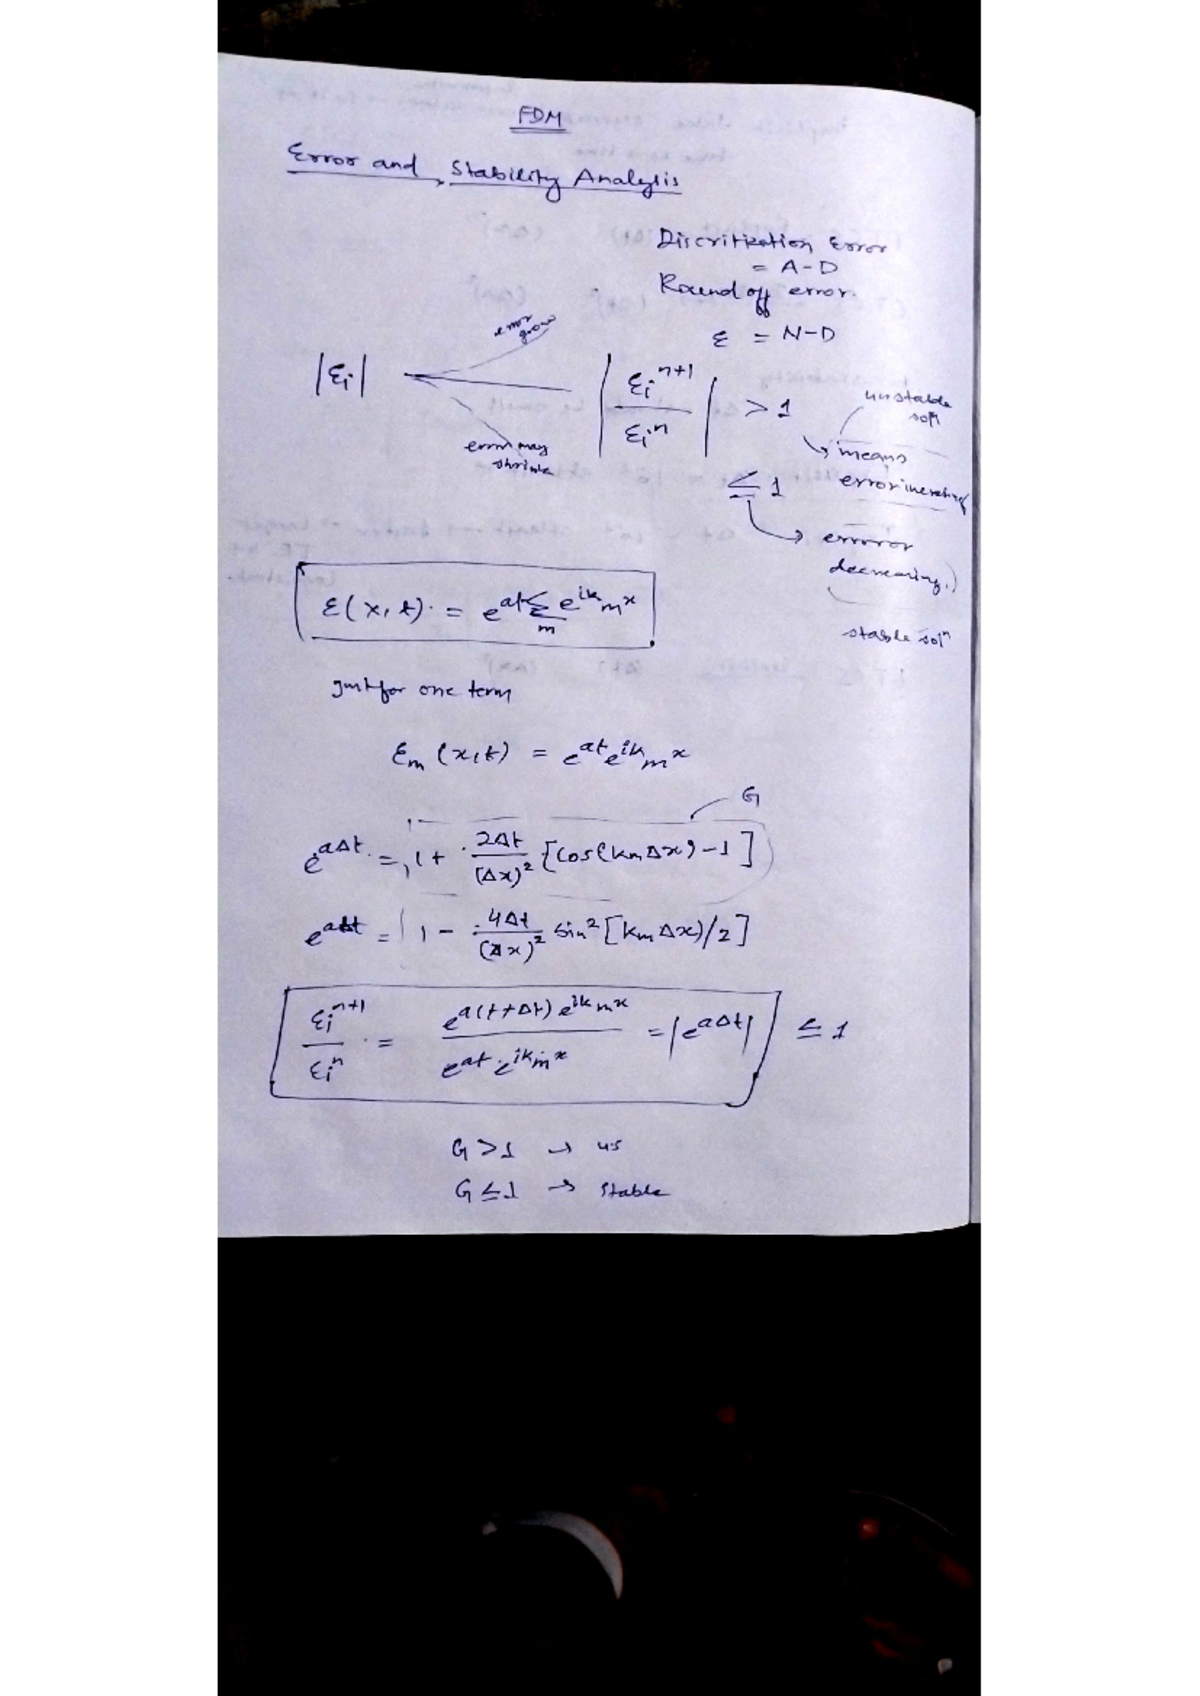 FDM
Error and Stability Analysis
Discritization Error
= A-D
Round off error.
ε = N-D
error grow
|εi|
error may shrink
|εi^n+1 / εi^n| > 1
unstable sol^n
means
error increasing
≤ 1
errror
decreasing.)
stable sol^n
ε(x,t) = e^at Σm e^ikmx
just for one term
εm(x,t) = e^at e^ikmx
G
e^aΔt = 1+ 2Δt/(Δx)^2 [cos(kmΔx)-1]
e^aΔt = 1 - 4Δt/(Δx)^2 sin^2[kmΔx)/2]
εi^n+1 / εi^n = e^a(t+Δt) e^ikmx / e^at . e^ikmx = |e^aΔt| ≤ 1
G > 1 → us
G ≤ 1 → stable